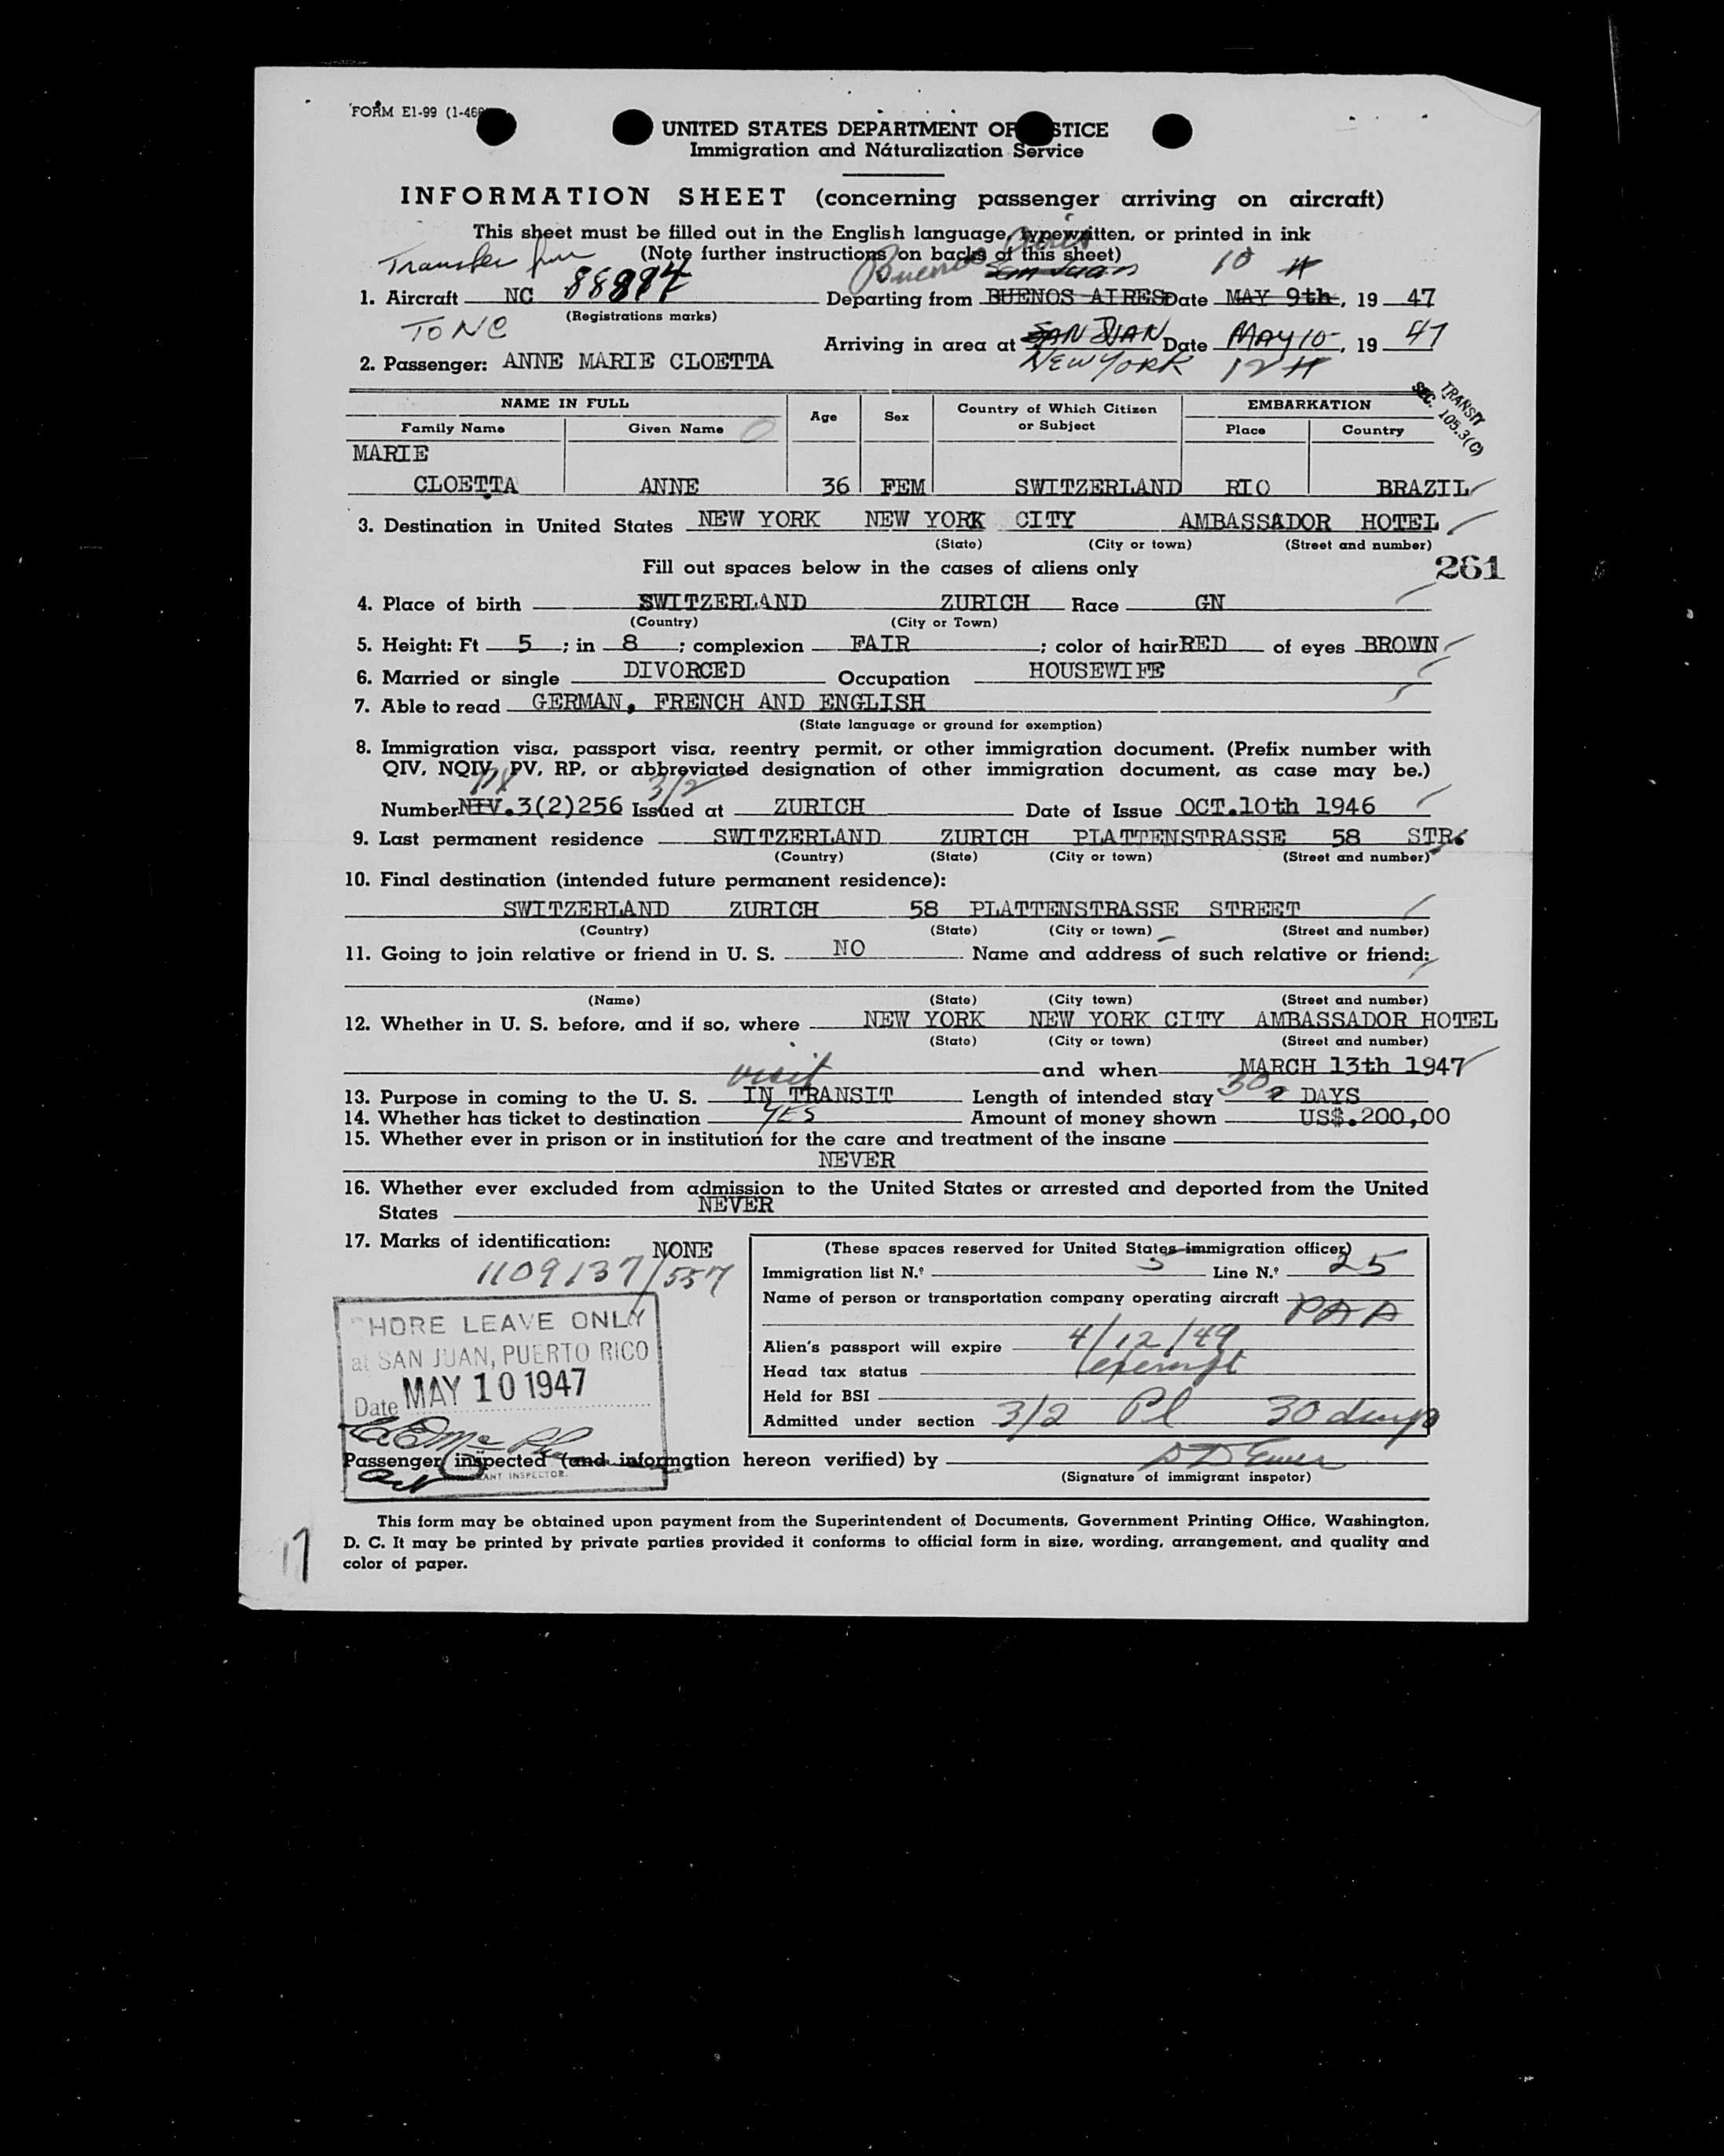 FORM E1-99 (1-46
UNITED STATES DEPARTMENT OF JUSTICE
Immigration and Naturalization Service
INFORMATION SHEET (concerning passenger arriving on aircraft)
This sheet must be filled out in the English language, typewritten, or printed in ink
(Note further instructions on backs of this sheet)
Transfer from
Buenos Aires
San Juan
10
1. Aircraft NC 88884 Departing from BUENOS AIRES Date MAY 9th, 19 47
(Registrations marks)
TO NC
Arriving in area at SAN JUAN Date MAY 10, 19 47
NEW YORK 12
2. Passenger: ANNE MARIE CLOETTA
TRANSIT
SEC. 105.3(C)
NAME IN FULL Age Sex Country of Which Citizen or Subject EMBARKATION
Family Name Given Name Place Country
MARIE
CLOETTA ANNE 36 FEM SWITZERLAND RIO BRAZIL
3. Destination in United States NEW YORK NEW YORK CITY AMBASSADOR HOTEL
(State) (City or town) (Street and number)
Fill out spaces below in the cases of aliens only
261
4. Place of birth SWITZERLAND ZURICH Race GN
(Country) (City or Town)
5. Height: Ft 5 ; in 8 ; complexion FAIR ; color of hair RED of eyes BROWN
6. Married or single DIVORCED Occupation HOUSEWIFE
7. Able to read GERMAN, FRENCH AND ENGLISH
(State language or ground for exemption)
8. Immigration visa, passport visa, reentry permit, or other immigration document. (Prefix number with
QIV, NQIV, PV, RP, or abbreviated designation of other immigration document, as case may be.)
3/2
Number NIV.3(2)256 Issued at ZURICH Date of Issue OCT.10th 1946
9. Last permanent residence SWITZERLAND ZURICH PLATTENSTRASSE 58 STR.
(Country) (State) (City or town) (Street and number)
10. Final destination (intended future permanent residence):
SWITZERLAND ZURICH 58 PLATTENSTRASSE STREET
(Country) (State) (City or town) (Street and number)
11. Going to join relative or friend in U. S. NO Name and address of such relative or friend:
(Name) (State) (City town) (Street and number)
12. Whether in U. S. before, and if so, where NEW YORK NEW YORK CITY AMBASSADOR HOTEL
(State) (City or town) (Street and number)
and when MARCH 13th 1947
visit
30
13. Purpose in coming to the U. S. IN TRANSIT Length of intended stay 2 DAYS
14. Whether has ticket to destination YES Amount of money shown US$.200,00
15. Whether ever in prison or in institution for the care and treatment of the insane
NEVER
16. Whether ever excluded from admission to the United States or arrested and deported from the United
States NEVER
17. Marks of identification: NONE
1109137/557
(These spaces reserved for United States immigration officer)
Immigration list N.º 5 Line N.º 25
Name of person or transportation company operating aircraft
PAA
Alien's passport will expire 4/12/49
Head tax status exempt
Held for BSI
Admitted under section 3/2 Pl 30 days
SHORE LEAVE ONLY
at SAN JUAN, PUERTO RICO
Date MAY 10 1947
IMMIGRANT INSPECTOR.
Passenger inspected (and information hereon verified) by
(Signature of immigrant inspetor)
This form may be obtained upon payment from the Superintendent of Documents, Government Printing Office, Washington,
D. C. It may be printed by private parties provided it conforms to official form in size, wording, arrangement, and quality and
color of paper.
17